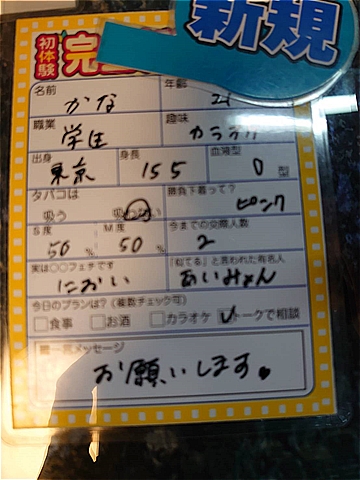 新規
初体験
完
名前 かな 年齢 21
職業 学生 趣味 カラオケ
出身 東京 身長 155 血液型 O 型
タバコは 勝負下着って?
吸う 吸わない ピンク
S度 M度 今までの交際人数
50 % 50 % 2
実は○○フェチです 「似てる」と言われた有名人
におい あいみょん
今日のプランは?(複数チェック可)
食事 お酒 カラオケ トークで相談
メッセージ
お願いします。